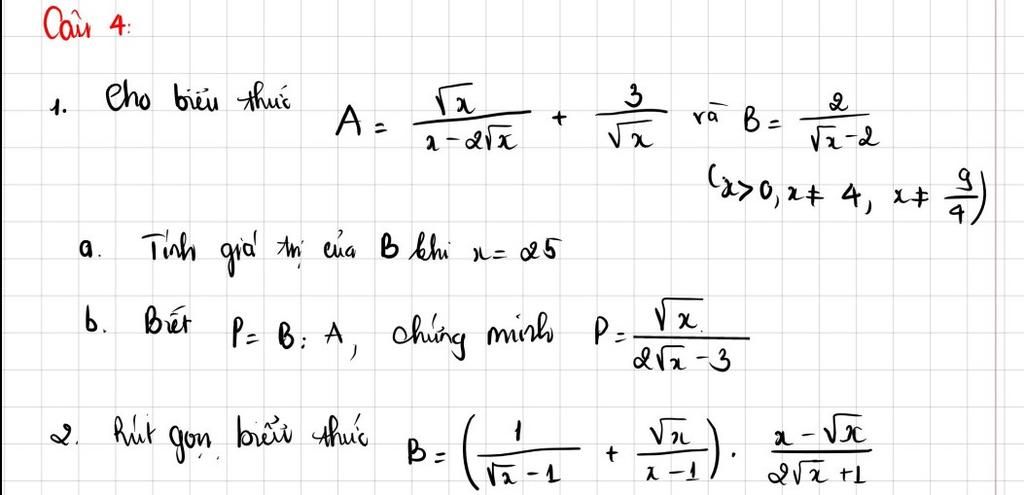 Câu 4:
1. Cho biểu thức A = \frac{\sqrt{x}}{x - 2\sqrt{x}} + \frac{3}{\sqrt{x}} và B = \frac{2}{\sqrt{x} - 2}
(x > 0, x ≠ 4, x ≠ \frac{9}{4})
a. Tính giá trị của B khi x = 25
b. Biết P = B : A, chứng minh P = \frac{\sqrt{x}}{2\sqrt{x} - 3}
2. Rút gọn biểu thức B = \left( \frac{1}{\sqrt{x} - 1} + \frac{\sqrt{x}}{x - 1} \right) . \frac{x - \sqrt{x}}{2\sqrt{x} + 1}